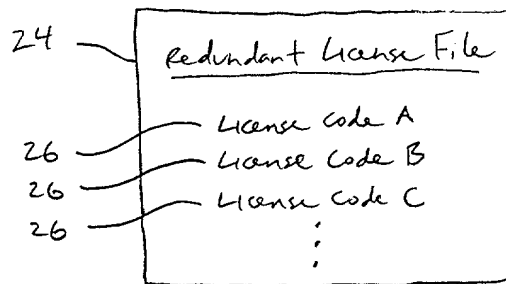 24
Redundant License File
26 License Code A
26 License Code B
26 License Code C